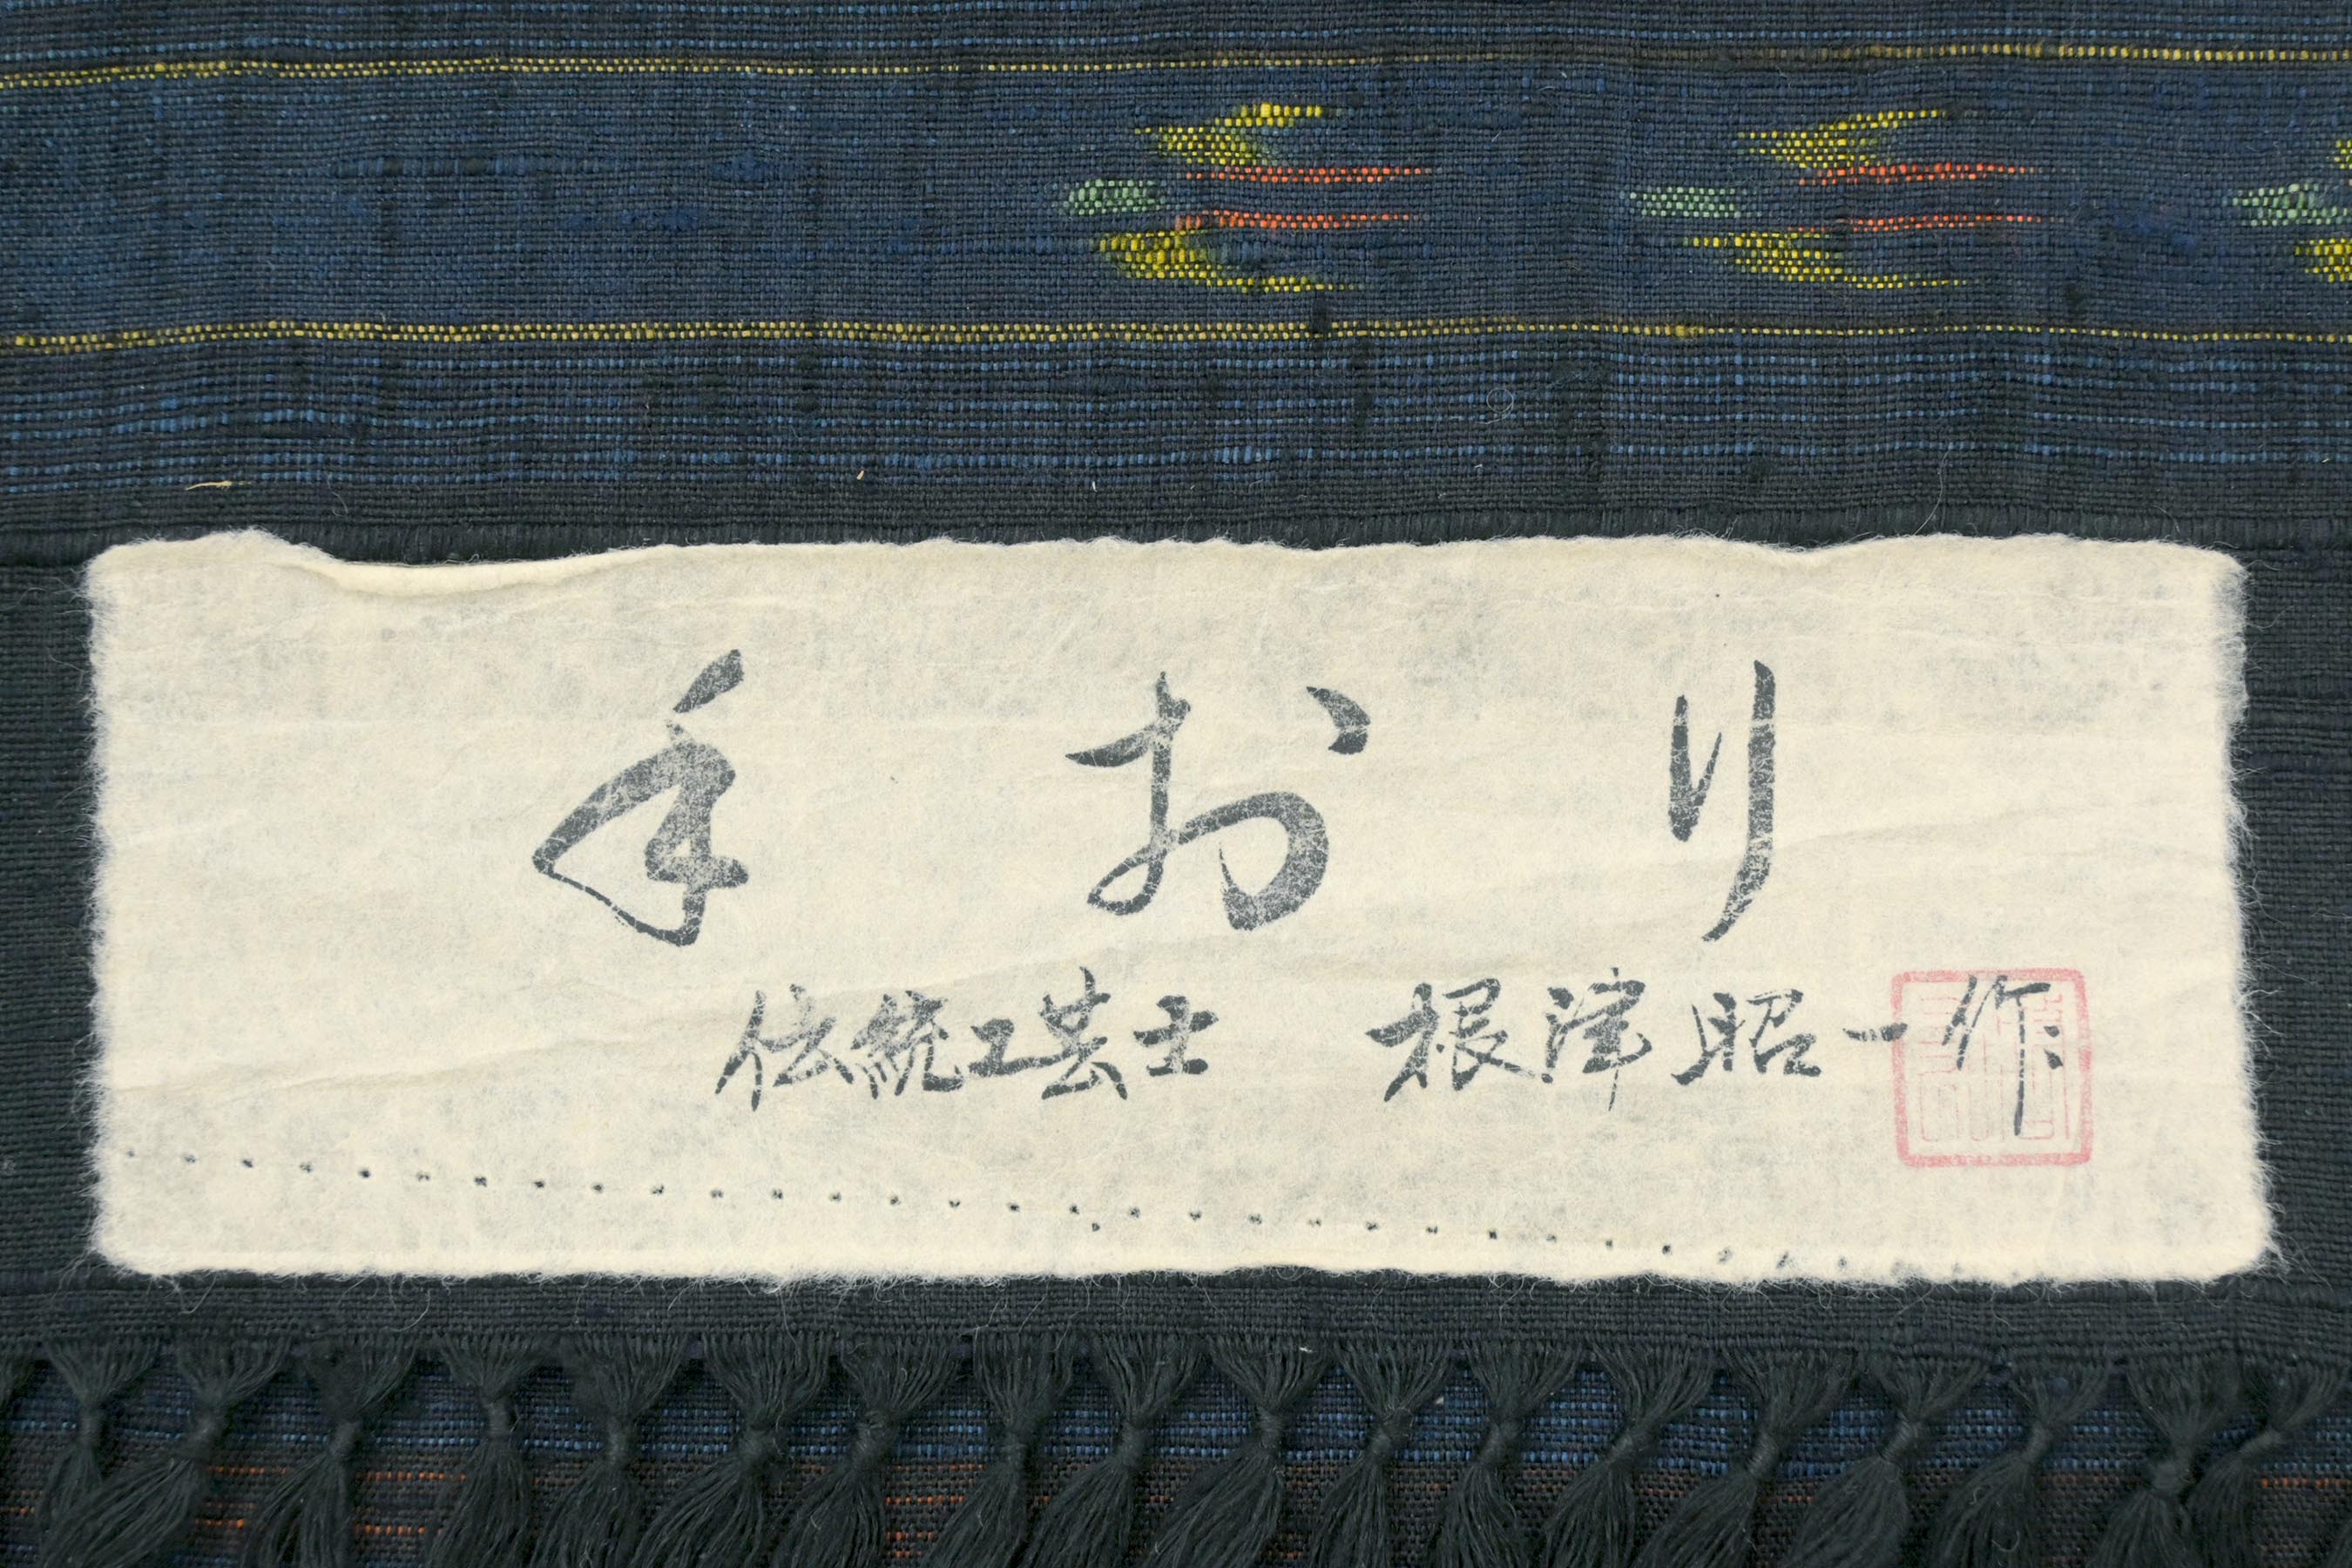 手おり
伝統工芸士 根津昭一作